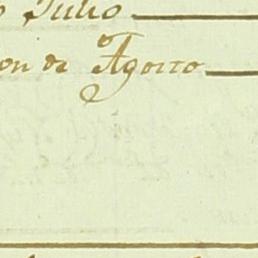 Julio
on de Agosto